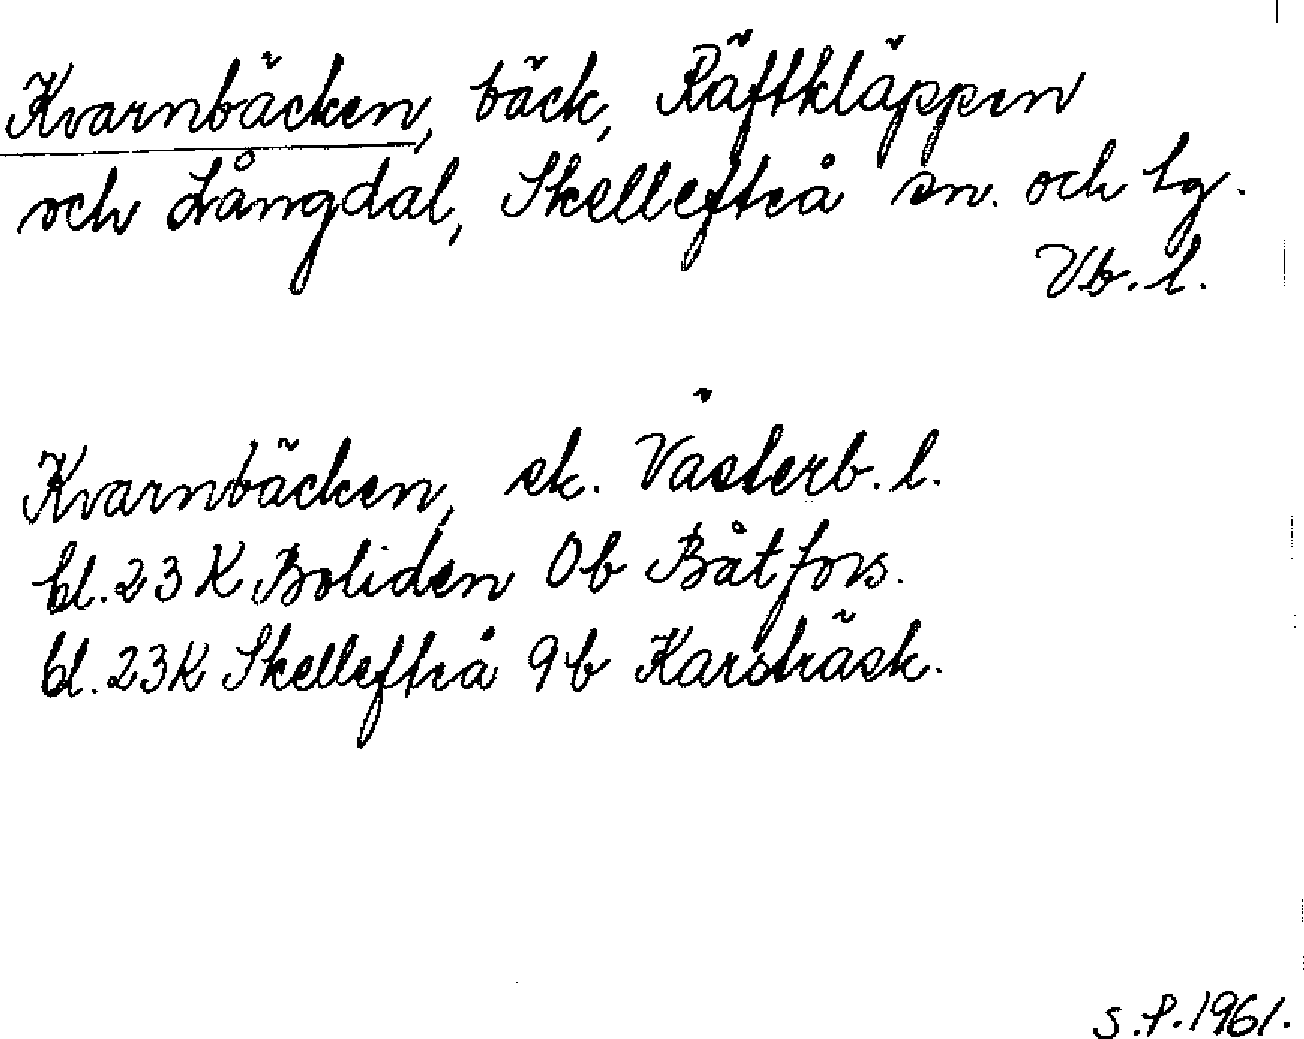 Kvarnbäcken, bäck, Räftkläppen
och Långdal, Skellefteå sn. och tg.
Vb. l.
Kvarnbäcken, ek. Västerb. l.
bl. 23 K Boliden 0b Båtfors.
bl. 23K Skellefteå 9b Karsträsk.
S.P. 1961.